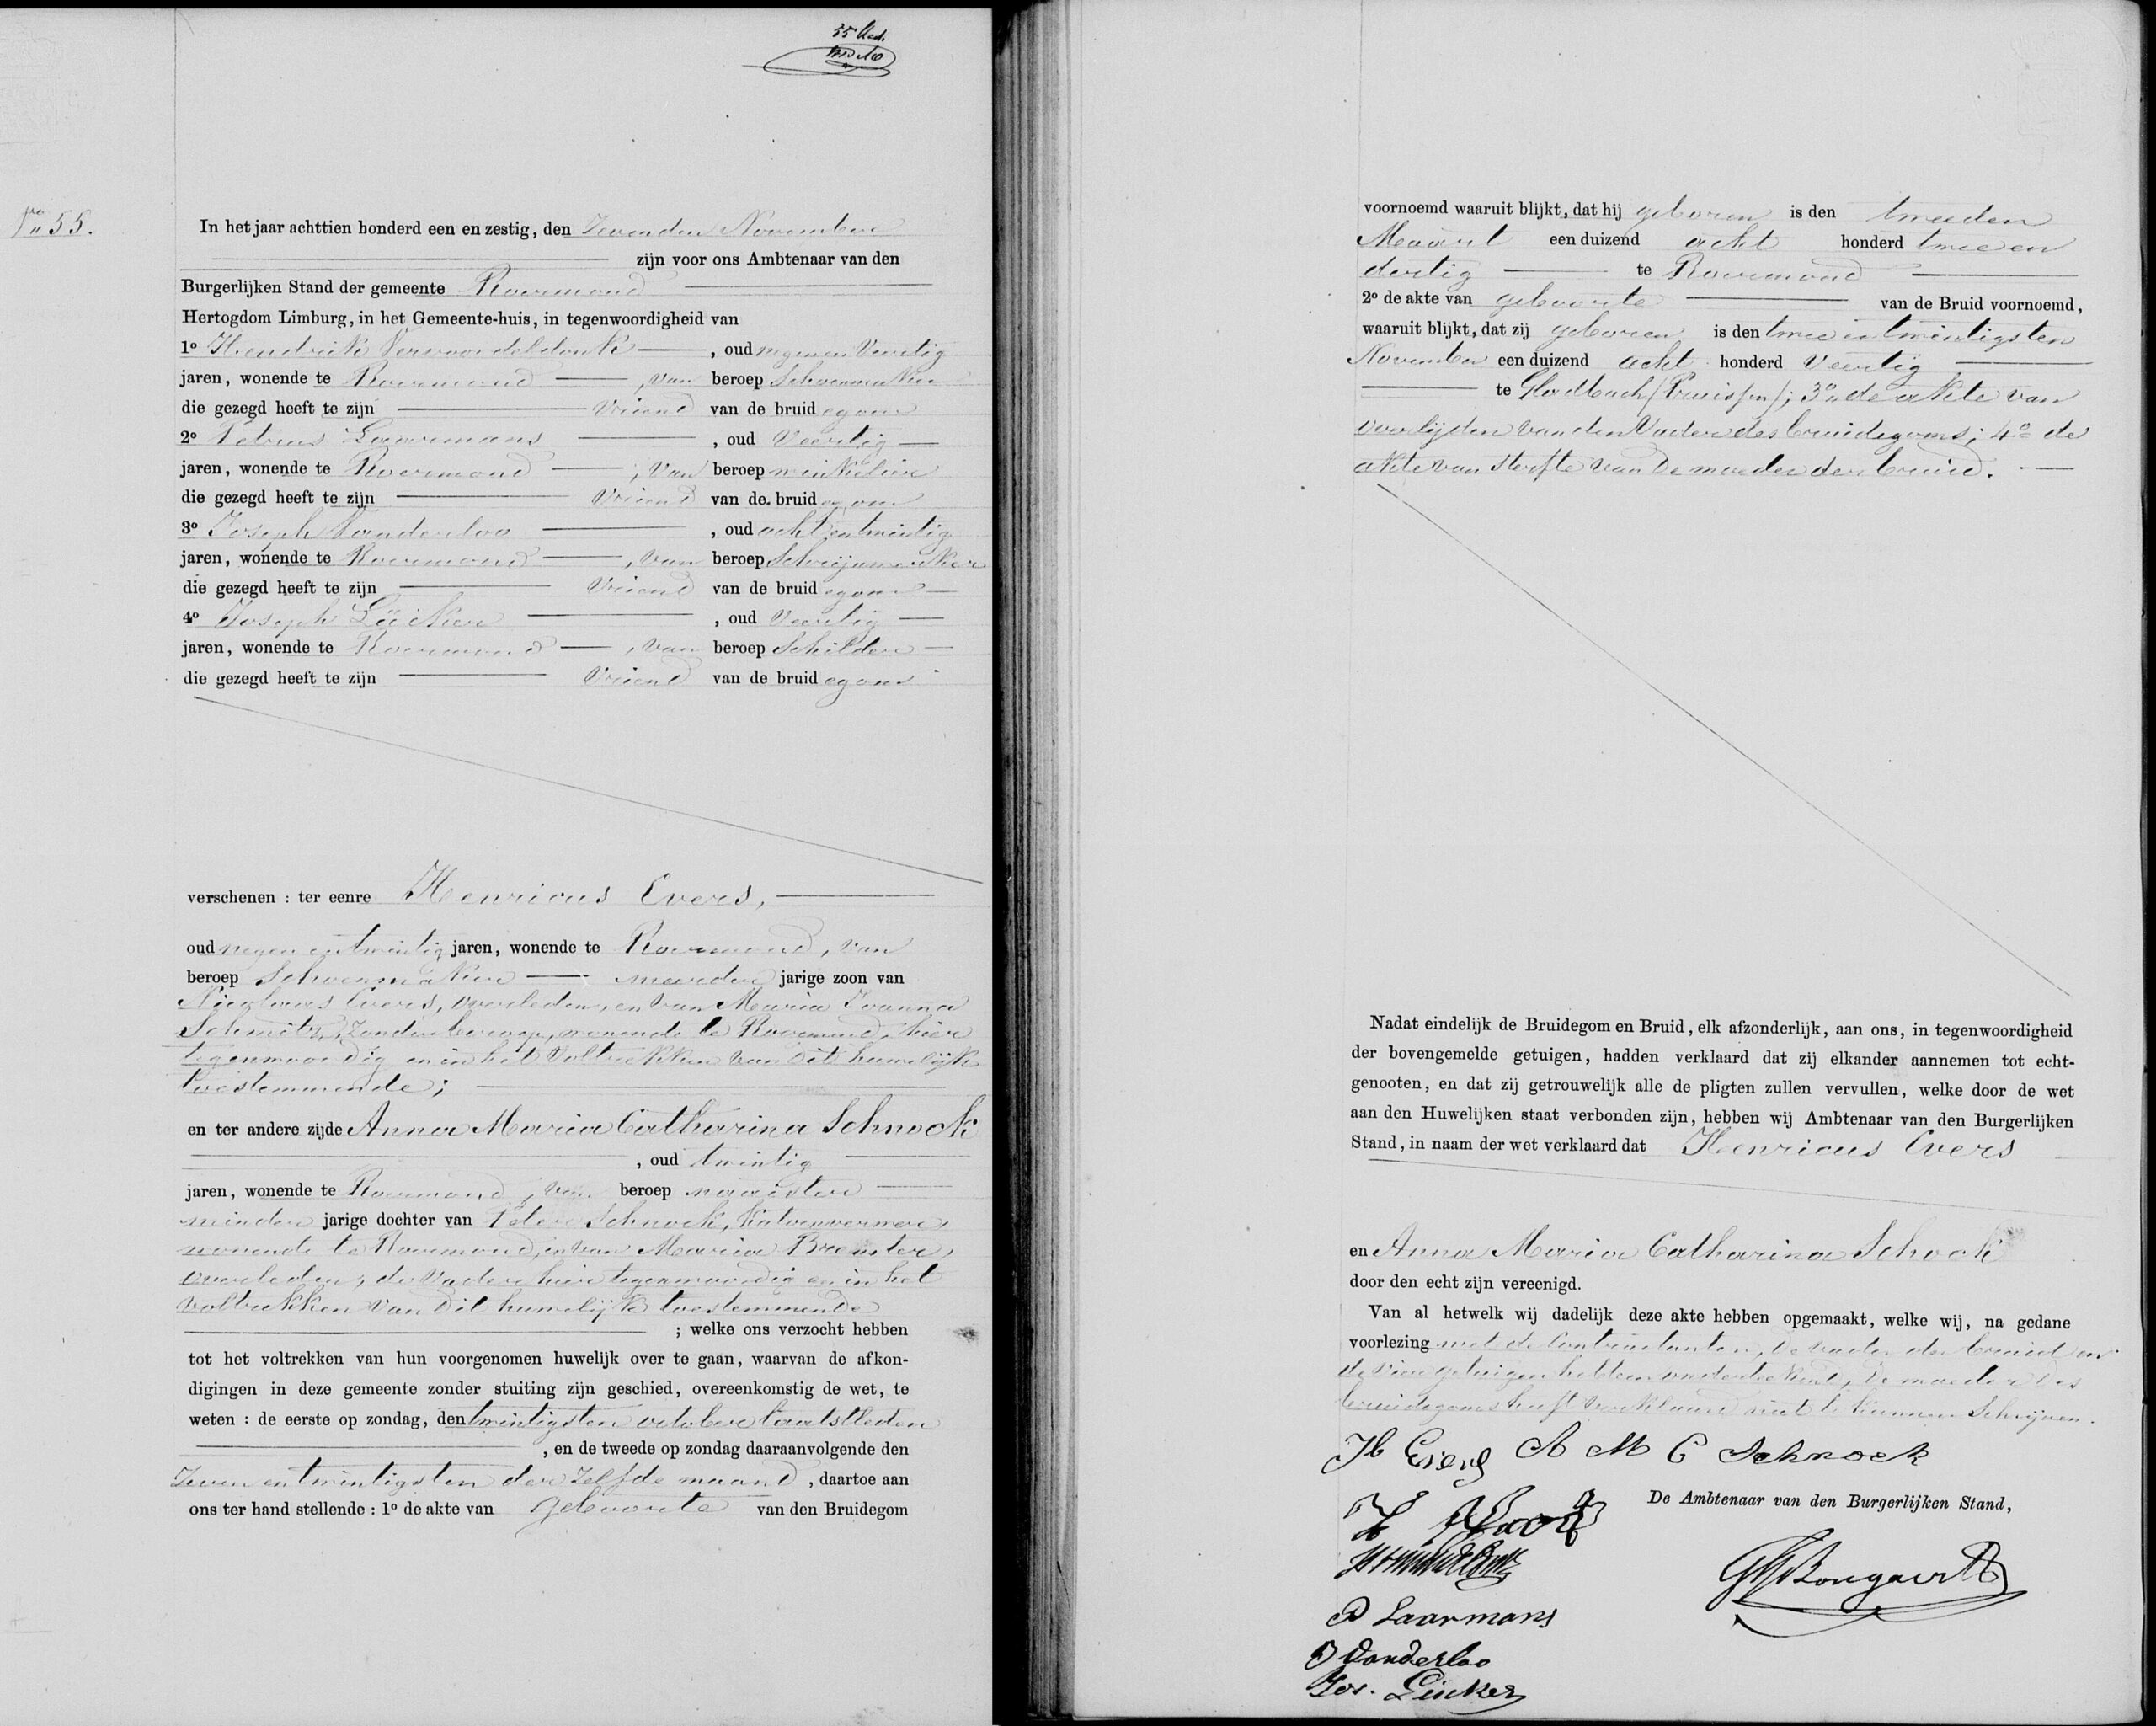 55
No 55.
In het jaar achttien honderd een en zestig, den Zevenden November
zijn voor ons Ambtenaar van den
Burgerlijken Stand der gemeente Roermond
Hertogdom Limburg, in het Gemeente-huis, in tegenwoordigheid van
1o Hendrik Vervoordeldonk, oud negen en Veertig
jaren, wonende te Roermond, van beroep Schoenmaker
die gezegd heeft te zijn Vriend van de bruidegom
2o Petrus Laarmans, oud Veertig
jaren, wonende te Roermond, van beroep winkelier
die gezegd heeft te zijn Vriend van de bruidegom
3o Joseph Vanderloo, oud acht en twintig
jaren, wonende te Roermond, van beroep Schrijnwerker
die gezegd heeft te zijn Vriend van de bruidegom
4o Joseph Lücker, oud Veertig
jaren, wonende te Roermond, van beroep Schilder
die gezegd heeft te zijn Vriend van de bruidegom
verschenen : ter eenre Henricus Evers,
oud negen en twintig jaren, wonende te Roermond, van
beroep Schoenmaker meerder jarige zoon van
Nicolaus Evers, overleden, en van Maria Joanna
Schmitz, zonder beroep, wonende te Roermond, hier
tegenwoordig en in het Voltrekken van dit huwelijk
toestemmende;
en ter andere zijde Anna Maria Catharina Schnock
, oud twintig
jaren, wonende te Roermond, van beroep naaister
minder jarige dochter van Peter Schnock, Katoenverwer,
wonende te Roermond, en van Maria Brewster,
overleden, de Vader hier tegenwoordig en in het
voltrekken van dit huwelijk toestemmende
; welke ons verzocht hebben
tot het voltrekken van hun voorgenomen huwelijk over te gaan, waarvan de afkon-
digingen in deze gemeente zonder stuiting zijn geschied, overeenkomstig de wet, te
weten : de eerste op zondag, den twintigsten october laatstleden
, en de tweede op zondag daaraanvolgende den
Zeven en twintigsten der Zelfde maand, daartoe aan
ons ter hand stellende : 1o de akte van geboorte van den Bruidegom
voornoemd waaruit blijkt, dat hij geboren is den tweeden
Maart een duizend acht honderd twee en
dertig te Roermond
2o de akte van geboorte van de Bruid voornoemd,
waaruit blijkt, dat zij geboren is den twee en twintigsten
November een duizend acht honderd Veertig
te Gladbach (Pruissen); 3o de akte van
overlijden van den Vader des bruidegoms; 4o de
akte van sterfte van de moeder der bruid.
Nadat eindelijk de Bruidegom en Bruid, elk afzonderlijk, aan ons, in tegenwoordigheid
der bovengemelde getuigen, hadden verklaard dat zij elkander aannemen tot echt-
genooten, en dat zij getrouwelijk alle de pligten zullen vervullen, welke door de wet
aan den Huwelijken staat verbonden zijn, hebben wij Ambtenaar van den Burgerlijken
Stand, in naam der wet verklaard dat Henricus Evers
en Anna Maria Catharina Schock
door den echt zijn vereenigd.
Van al hetwelk wij dadelijk deze akte hebben opgemaakt, welke wij, na gedane
voorlezing met de Contractanten, de vader der bruid en
de vier getuigen hebben onderteekend, de moeder des
bruidegoms heeft verklaard niet te kunnen Schrijven.
H Evers A M C Schnock
De Ambtenaar van den Burgerlijken Stand,
GH Bongaerts
P Laarmans
J Vanderloo
Jos. Lücker